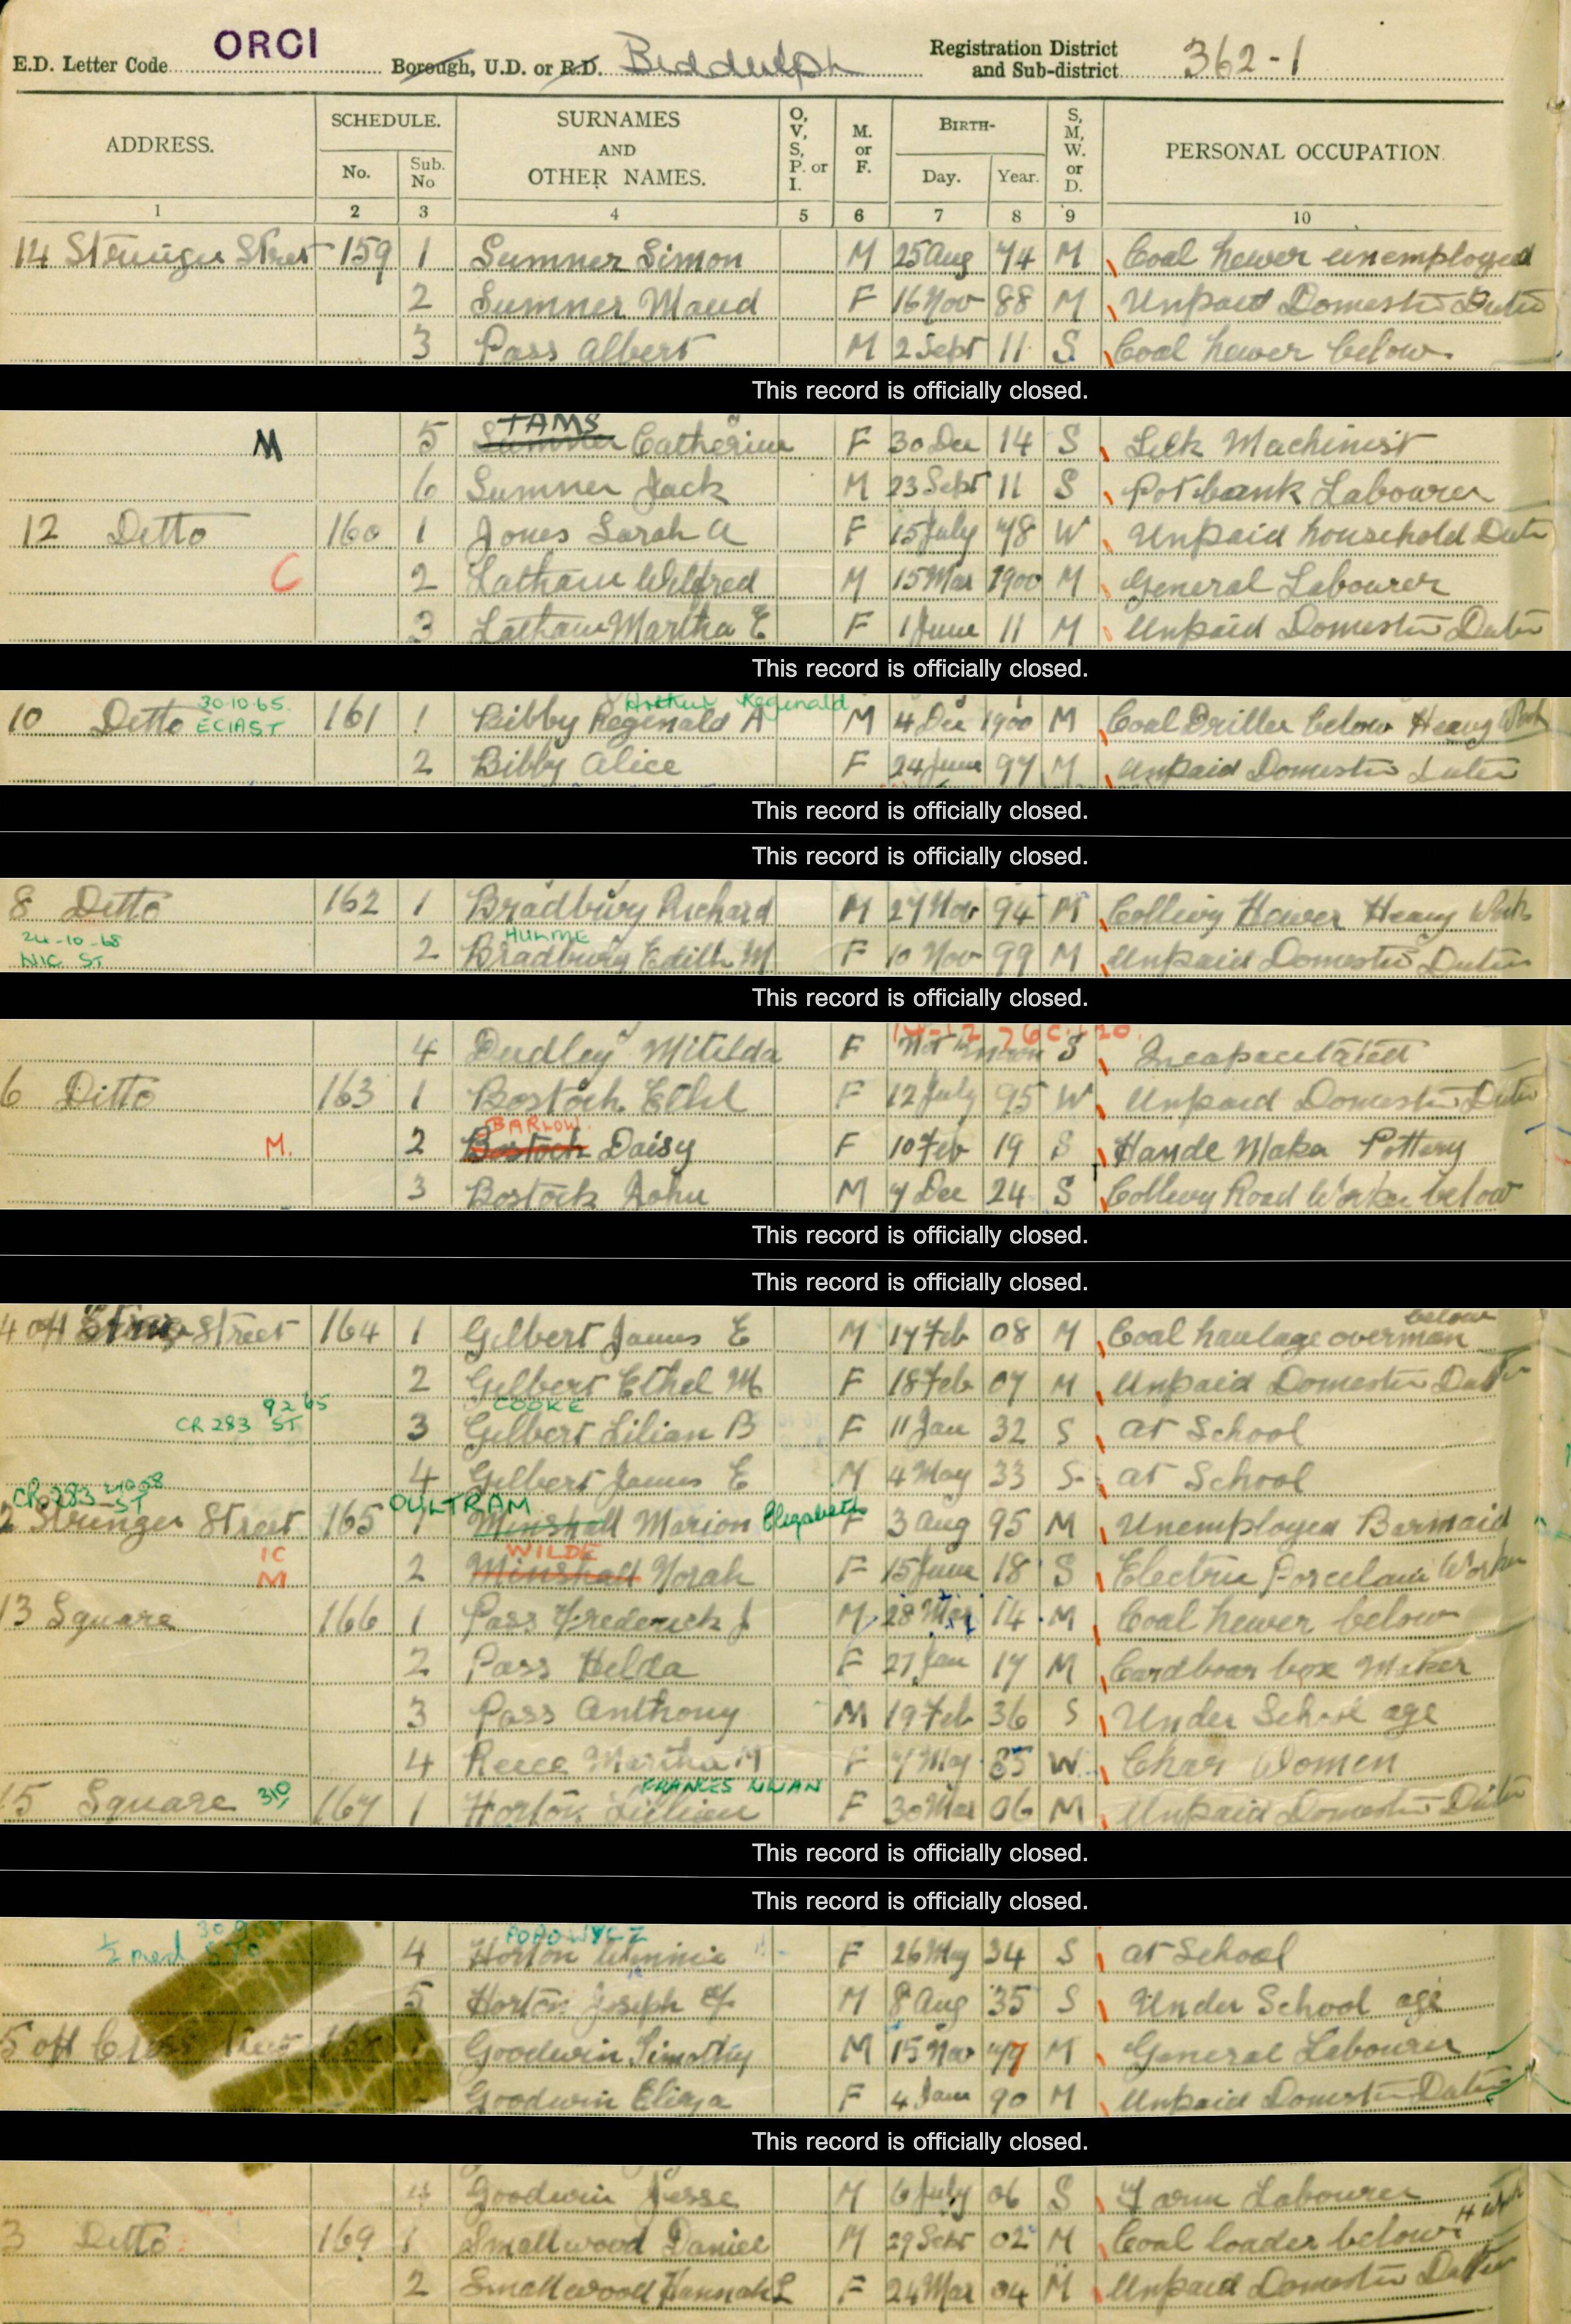 E.D. Letter Code ORCI Borough, U.D. or R.D. Biddulph Registration District and Sub-district 362-1
ADDRESS. SCHEDULE. SURNAMES AND OTHER NAMES. O, V, S, P. or I. M. or F. BIRTH- S, M, W. or D. PERSONAL OCCUPATION.
No. Sub. No Day. Year.
1 2 3 4 5 6 7 8 9 10
14 Stringer Street 159 1 Sumner Simon M 25 Aug 74 M Coal hewer unemployed
2 Sumner Maud F 16 Nov 88 M Unpaid Domestic Duties
3 Pass Albert M 2 Sept 11 S Coal hewer below
This record is officially closed.
TAMS
M 5 Sumner Catherine F 30 Dec 14 S Silk Machinist
6 Sumner Jack M 23 Sept 11 S Potbank Labourer
12 Ditto 160 1 Jones Sarah A F 15 July 48 W Unpaid household Dutie
C 2 Latham Wilfred M 15 Mar 1900 M General Labourer
3 Latham Martha E F 1 June 11 M Unpaid Domestic Duties
This record is officially closed.
30.10.65. Arthur Reginald
10 Ditto ECIAST 161 1 Bibby Reginald A M 4 Dec 1900 M Coal Driller below Heavy Work
2 Bibby Alice F 24 June 97 M Unpaid Domestic Duties
This record is officially closed.
This record is officially closed.
8 Ditto 162 1 Bradbury Richard M 27 Mar 94 M Colliery Hewer Heavy Work
24-10-68 HULME
NIC ST 2 Bradbury Edith M F 10 Nov 99 M Unpaid Domestic Duties
This record is officially closed.
4 Dudley Mitilda F Not Known S Incapacitated
6 Ditto 163 1 Bostock Ethel F 12 July 95 W Unpaid Domestic Duties
BARLOW.
M. 2 Bostock Daisy F 10 Feb 19 S Hande Maker Pottery
3 Bostock John M 7 Dec 24 S Colliery Road Worker below
This record is officially closed.
This record is officially closed.
below
4 off Stringer Street 164 1 Gilbert James E M 17 Feb 08 M Coal haulage overman
2 Gilbert Ethel M F 18 Feb 07 M Unpaid Domestic Duties
9 2 65 COOKE
CR 283 ST 3 Gilbert Lilian B F 11 Jan 32 S at School
4 Gilbert James E M 4 May 33 S at School
CR 283 ST OULTRAM Elizabeth
2 Stringer Street 165 1 Minshall Marion F 3 Aug 95 M Unemployed Barmaid
IC WILDE
M 2 Minshall Norah F 15 June 18 S Electric Porcelain Worker
13 Square 166 1 Pass Frederick J M 28 Mar 14 M Coal hewer below
2 Pass Hilda F 27 Jan 17 M Cardboar box Maker
3 Pass Anthony M 19 Feb 36 S Under School age
4 Reece Martha M F 7 May 85 W Char Women
FRANCES LILIAN
15 Square 310 167 1 Horton Lillian F 30 Mar 06 M Unpaid Domestic Duties
This record is officially closed.
This record is officially closed.
POPOWYCZ
4 Horton Winnie F 26 May 34 S at School
5 Horton Joseph M 8 Aug 35 S Under School age
5 off Cross Street 168 1 Goodwin Timothy M 15 Nov 77 M General Labourer
Goodwin Eliza F 4 Jan 90 M Unpaid Domestic Duties
This record is officially closed.
4 Goodwin Jesse M 6 July 06 S Farm Labourer
3 Ditto 169 1 Smallwood Daniel M 29 Sept 02 M Coal loader below
2 Smallwood Hannah L F 24 Mar 04 M Unpaid Domestic Duties